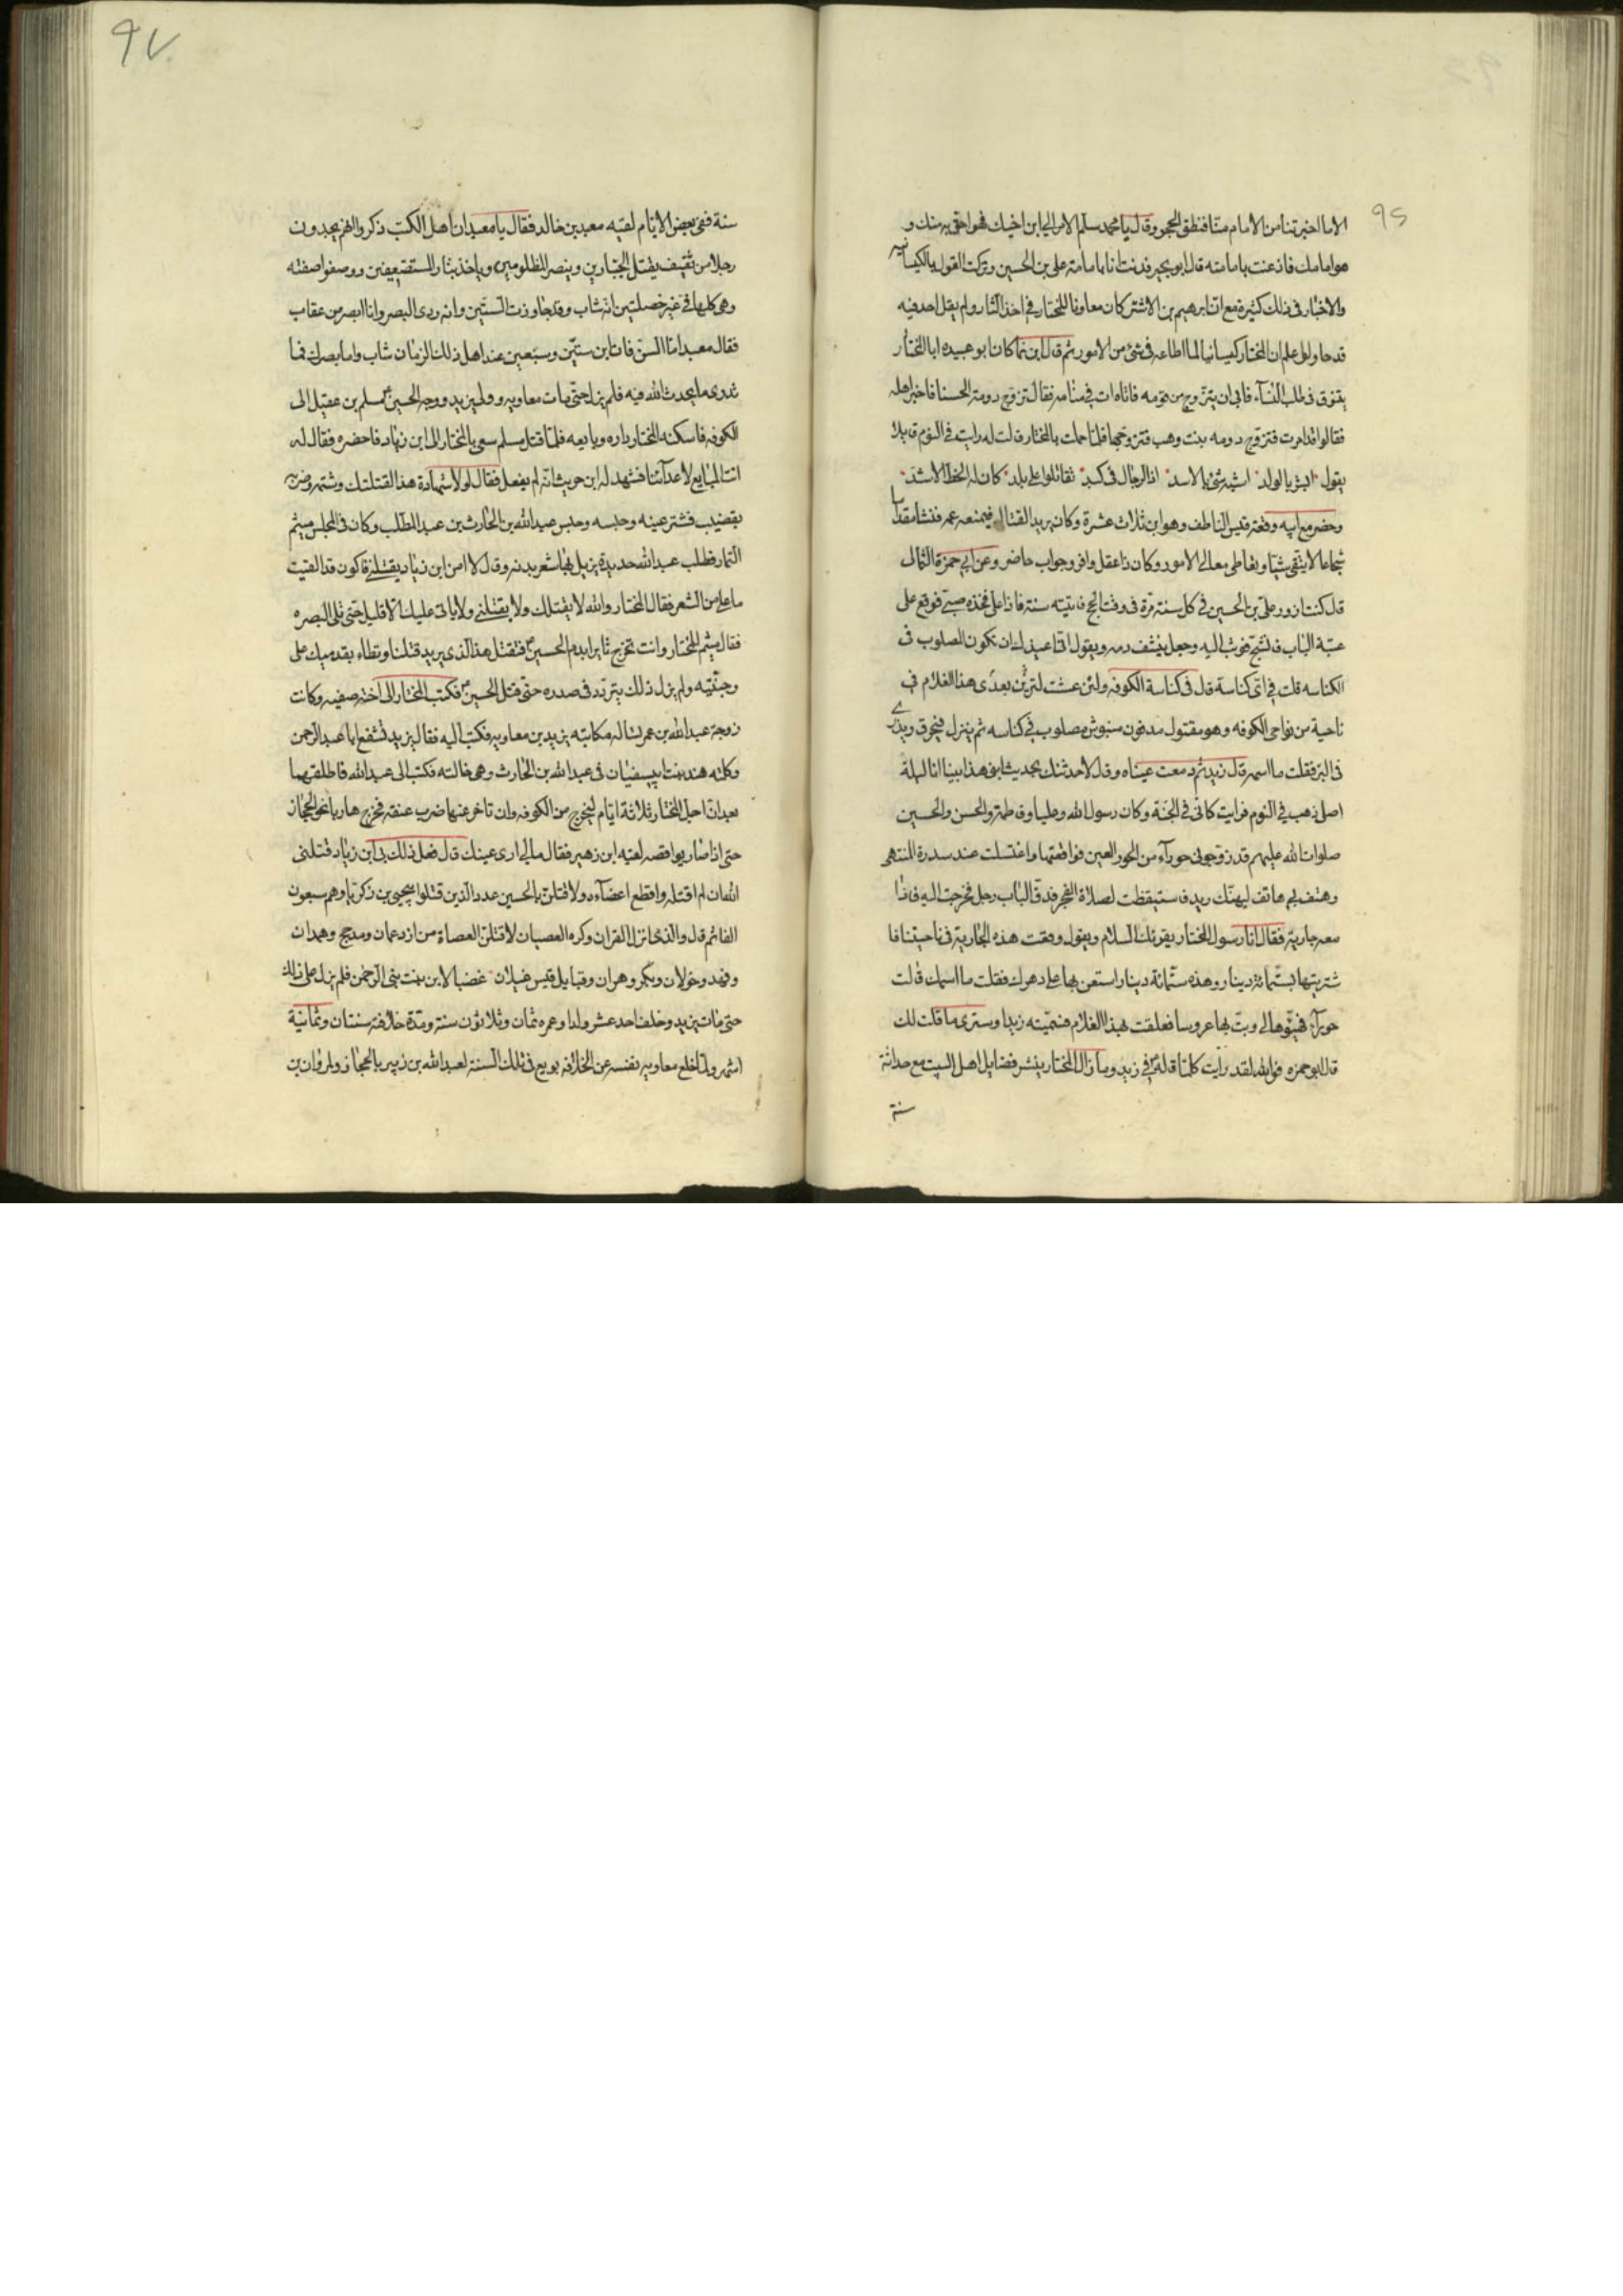 ٩٦
الا ما اخبرتنا من الامام منا فنطق الحجر وقال يا محمد سلم الامر الى ابن اخيك فهو احق به منك و
هو امامك فاذعنت بامامته قال ابو بجير فدنت انا بامامة على بن الحسين وتركت القول بالكيسانيه
والاخبار فى ذلك كثيرة مع ان ابرهيم بن الاشتر كان معاونا للمختار فى اخذ الثار ولم يقل احد فيه
ثم قال ابن نما كان ابو عبيده ابا المختار
يتنوق فى طلب النسآء فابى ان يتزوج من قومه فاتاه ات فى منامه فقال تزوج دومة الحسنا فاخبر اهله
فقالوا قد امرت فتزوج دومه بنت وهب فتزوجها فلما حملت بالمختار قالت له رايت فى النوم قايلا
يقول ابشر يا لولد اشبه شئ بالاسد اذا الرجال فى كبد تقاتلوا على بلد كان له الحظ الاشد
وحضر مع ابيه وقعة قيس الناطف وهو ابن ثلاث عشرة وكان يريد القتال فيمنعه عمه فنشا مقداما
شجاعا لا يتقى شيئا وتعاطى معالى الامور وكان ذا عقل وافر وجواب حاضر وعن ابى حمزة الثمالى
قال كنت ازور على بن الحسين فى كل سنة مرة فى وقت الحج فاتيته سنة فاذا على فخذه صبى فوقع على
عتبة الباب فانشج فوثب اليه وجعل ينشف دمه ويقول انى اعيذك ان تكون المصلوب فى
الكناسه قلت فى اى كناسة قال فى كناسة الكوفه ولئن عشت لترين بعدى هذا الغلام فى
ناحية من نواحى الكوفه وهو مقتول مدفون منبوش مصلوب فى كناسه ثم ينزل فيحرق ويذرى
فى البر فقلت ما اسمه قال زيد ثم دمعت عيناه وقال لاحدثنك بحديث ابنى هذا بينا انا ليلة
اصلى ذهب فى النوم فرايت كانى فى الجنة وكان رسول الله وعليا وفاطمة والحسن والحسين
صلوات الله عليهم قد زوجونى حورآء من الحور العين فواقعتها واغتسلت عند سدرة المنتهى
وهتف بى هاتف ليهنك زيد فاستيقظت لصلاة الفجر فدق الباب رجل فخرجت اليه فاذا
معه جارية فقال انا رسول المختار يقرئك السلام ويقول وقعت هذه الجارية فى ناحيتنا فا
شتريتها بستمائة دينار وهذه ستمائة دينار استعن بها على دهرك فقلت ما اسمك قالت
حورآء فهيؤها لى وبت بها عروسا فعلقت بهذا الغلام فسميته زيدا وسترى ما قلت لك
قال ابو حمزه فوالله لقد رايت كلما قاله فى زيد وما زال المختار ينشر فضايل اهل البيت مع حداثة
سنه
٩٧
سنة ففى بعض الايام لقيه معبد بن خالد فقال يا معبد ان اهل الكتب ذكروا انهم يجدون
رجلا من ثقيف يقتل الجبارين وينصر المظلومين وياخذ بثار المستضعفين ووصفوا صفته
وهى كلها فى غير خصلتين انه شاب وقد جاوزت الستين وانه ردى البصر وانا ابصر من عقاب
فقال معبد اما السن فان ابن ستين وسبعين عند اهل ذلك الزمان شاب واما بصرك فما
تدرى ما يحدث الله فيه فلم يزل حتى مات معاويه وولى يزيد ووجه الحسين مسلم بن عقيل الى
الكوفه فاسكنه المختار داره وبايعه فلما قتل مسلم سعى بالمختار الى ابن زياد فاحضره فقال له
انت المبايع لاعدآئنا فشهد له ابن حريث انه لم يفعل فقال لولا شهادة هذا لقتلتك وشتمه وضربه
بقضيب فشتر عينه وحبسه وحبس عبد الله بن الحارث بن عبد المطلب وكان فى المجلس ميثم
التمار فطلب عبد الله حديدة يزيل بها شعر بدنه وقال لا امن ابن زياد يقتلنى فاكون قد القيت
ما على من الشعر فقال المختار والله لا يقتلك ولا يقتلنى ولا ياتى عليك الا قليل حتى تلى البصره
فقال ميثم للمختار وانت تخرج ثايرا بدم الحسين فتقتل هذا الذى يريد قتلنا وتطاء بقدميك على
وجنتيه ولم يزل ذلك يتردد فى صدره حتى قتل الحسين فكتب المختار الى اخته صفيه وكانت
زوجة عبد الله بن عمر تساله مكاتبة يزيد بن معاويه فكتب اليه فقال يزيد نشفع ابا عبد الرحمن
وكلته هند بنت ابى سفيان فى عبد الله بن الحارث وهى خالته فكتب الى عبيد الله فاطلقهما
بعد ان اجل المختار ثلاثة ايام ليخرج من الكوفه وان تاخر عنها ضرب عنقه فخرج هاربا نحو الحجاز
حتى اذا صار بواقصه لقيه ابن زهير فقال مالى ارى عينك قال فعل ذلك بى ابن زياد قتلنى
الله ان لم اقتله واقطع اعضآءه ولاقتلن بالحسين عدد الذين قتلوا بيحيى بن زكريا وهم سبعون
الفا ثم قال والذى انزل القران وكره العصيان لاقتلن العصاة من ازد عمان ومذحج وهمدان
ونهد وخولان وبكر وهران وقبايل قيس غيلان غضبا لابن بنت نبى الرحمن فلم يزل على ذلك
حتى مات يزيد وخلف احد عشر ولدا وعمره ثمان وثلاثون سنة ومدة خلافته سنتان وثمانية
اشهر ولما خلع معاويه نفسه عن الخلافه بويع فى تلك السنة لعبد الله بن زبير بالحجاز ولمروان بن